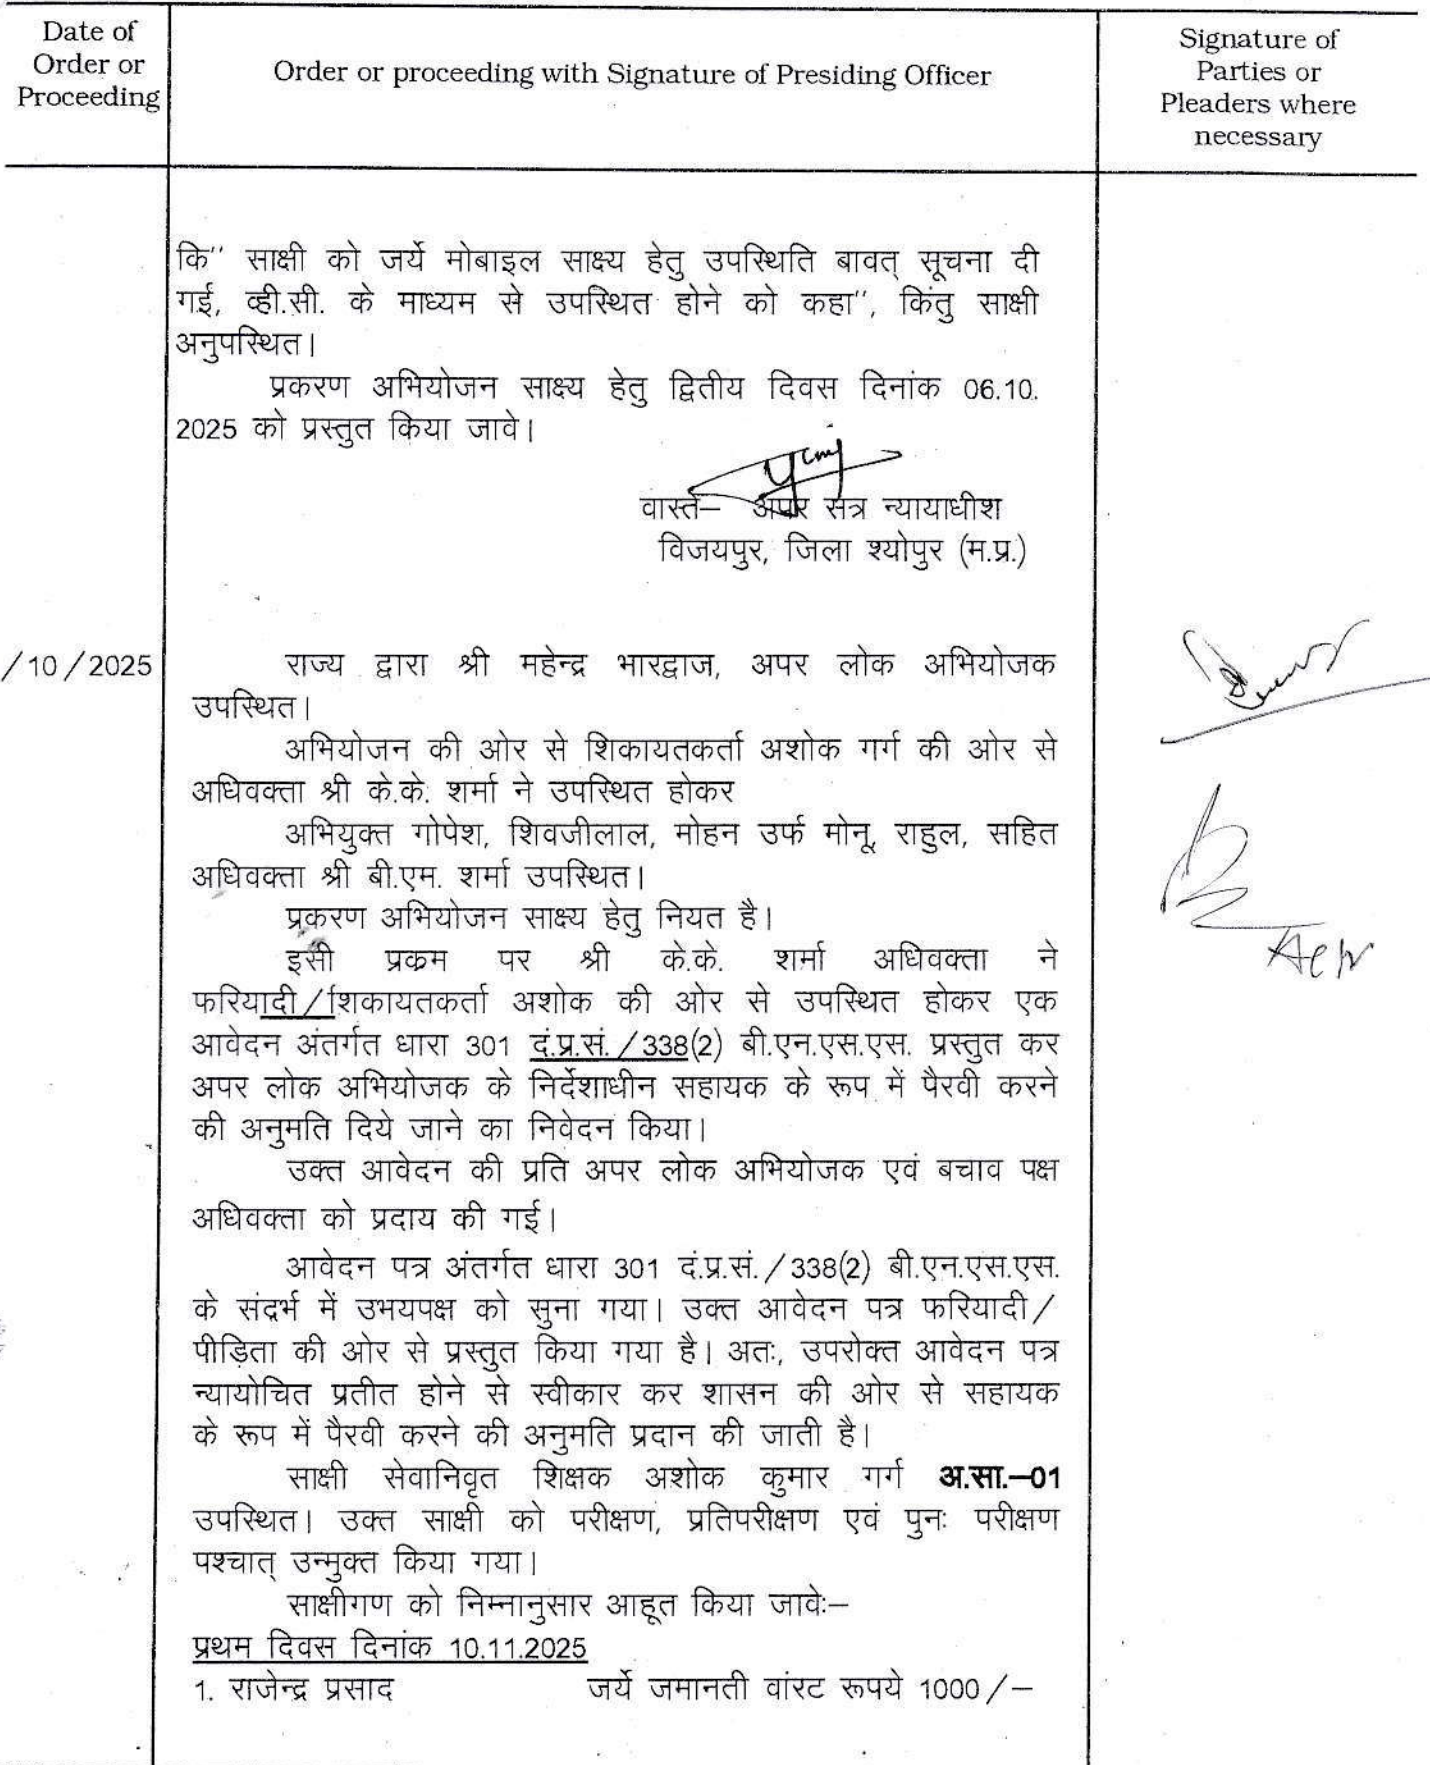 Date of
Order or
Proceeding
Order or proceeding with Signature of Presiding Officer
Signature of
Parties or
Pleaders where
necessary
कि" साक्षी को जर्ये मोबाइल साक्ष्य हेतु उपस्थिति बावत् सूचना दी
गई, व्ही.सी. के माध्यम से उपस्थित होने को कहा", किंतु साक्षी
अनुपस्थित।
प्रकरण अभियोजन साक्ष्य हेतु द्वितीय दिवस दिनांक 06.10.
2025 को प्रस्तुत किया जावे।
वास्ते– अपर सत्र न्यायाधीश
विजयपुर, जिला श्योपुर (म.प्र.)
/10/2025
राज्य द्वारा श्री महेन्द्र भारद्वाज, अपर लोक अभियोजक
उपस्थित।
अभियोजन की ओर से शिकायतकर्ता अशोक गर्ग की ओर से
अधिवक्ता श्री के.के. शर्मा ने उपस्थित होकर
अभियुक्त गोपेश, शिवजीलाल, मोहन उर्फ मोनू, राहुल, सहित
अधिवक्ता श्री बी.एम. शर्मा उपस्थित।
प्रकरण अभियोजन साक्ष्य हेतु नियत है।
इसी प्रकम पर श्री के.के. शर्मा अधिवक्ता ने
फरियादी/शिकायतकर्ता अशोक की ओर से उपस्थित होकर एक
आवेदन अंतर्गत धारा 301 दं.प्र.सं./338(2) बी.एन.एस.एस. प्रस्तुत कर
अपर लोक अभियोजक के निर्देशाधीन सहायक के रूप में पैरवी करने
की अनुमति दिये जाने का निवेदन किया।
उक्त आवेदन की प्रति अपर लोक अभियोजक एवं बचाव पक्ष
अधिवक्ता को प्रदाय की गई।
आवेदन पत्र अंतर्गत धारा 301 दं.प्र.सं./338(2) बी.एन.एस.एस.
के संदर्भ में उभयपक्ष को सुना गया। उक्त आवेदन पत्र फरियादी/
पीड़िता की ओर से प्रस्तुत किया गया है। अतः, उपरोक्त आवेदन पत्र
न्यायोचित प्रतीत होने से स्वीकार कर शासन की ओर से सहायक
के रूप में पैरवी करने की अनुमति प्रदान की जाती है।
साक्षी सेवानिवृत शिक्षक अशोक कुमार गर्ग अ.सा.–01
उपस्थित। उक्त साक्षी को परीक्षण, प्रतिपरीक्षण एवं पुनः परीक्षण
पश्चात् उन्मुक्त किया गया।
साक्षीगण को निम्नानुसार आहूत किया जावेः–
प्रथम दिवस दिनांक 10.11.2025
1. राजेन्द्र प्रसाद जर्ये जमानती वांरट रूपये 1000/–